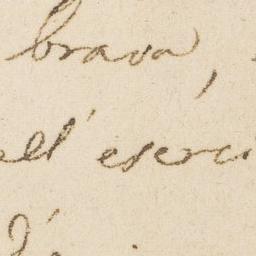 brava,
ell' eserci